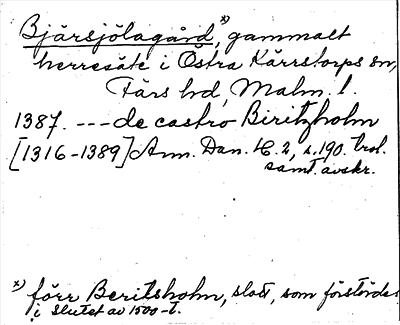 Bjärsjölagård,ˣ⁾ gammalt
herresäte i Östra Kärrstorps sn,
Färs hd, Malm. l.
1387. --- de castro Biritzholm
[1316-1389] Ann. Dan. 4:2, s. 190. trol.
samt. avskr.
ˣ⁾ förr Beritsholm, slott, som förstördes
i slutet av 1500-t.